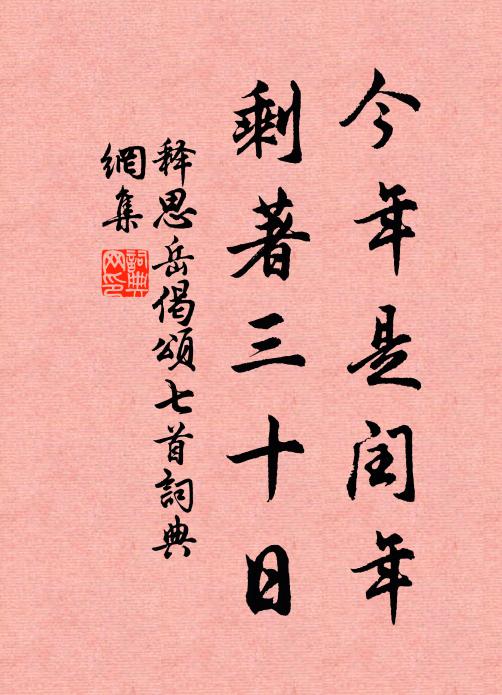 今年是闰年
剩著三十日
释思岳偈頌七首詞典
網集
詞典
网印